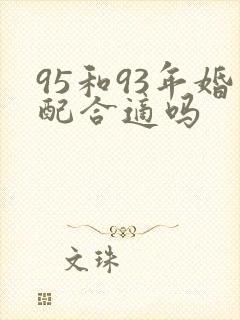 95和93年婚
配合适吗
文珠